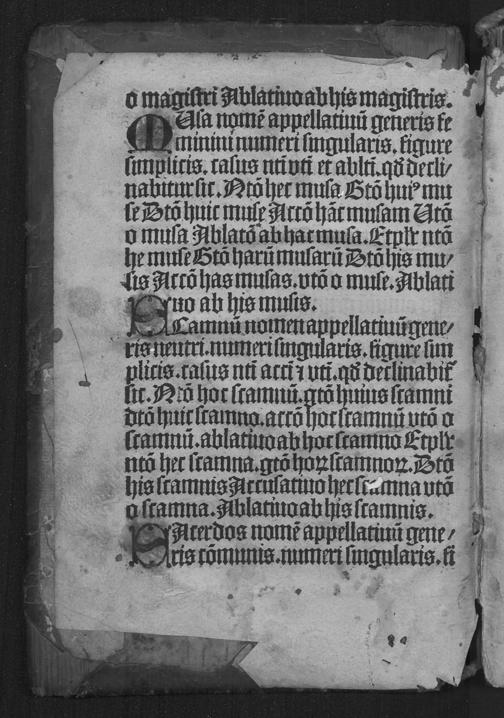 o magistri Ablatiuo ab his magistris.
MUsa nomē appellatiuū generis fe
minini numeri singularis. figure
simplicis. casus ntī vtī et abltī. qđ decli/
nabitur sic. Ntō hec musa Gtō huiꝰ mu
se Dtō huic muse Accō hāc musam Utō
o musa Ablatō ab hac musa. Et plr̄ ntō
he muse Gtō harū musarū Dtō his mu/
sis Accō has musas. vtō o muse. Ablati
uo ab his musis.
SCamnū nomen appellatiuū gene/
ris neutri. numeri singularis. figure sim
plicis. casus ntī accī ⁊ vtī. qđ declinabit̄
sic. Ntō hoc scamnū. gtō huius scamni
dtō huic scamno. accō hoc scamnū vtō o
scamnū. ablatiuo ab hoc scamno Et plr̄
ntō hec scamna. gtō hoꝝ scamnoꝝ. Dtō
his scamnis Accusatiuo hec scamna vtō
o scamna. Ablatiuo ab his scamnis.
SAcerdos nomē appellatiuū gene/
ris cōmunis. numeri singularis. fi